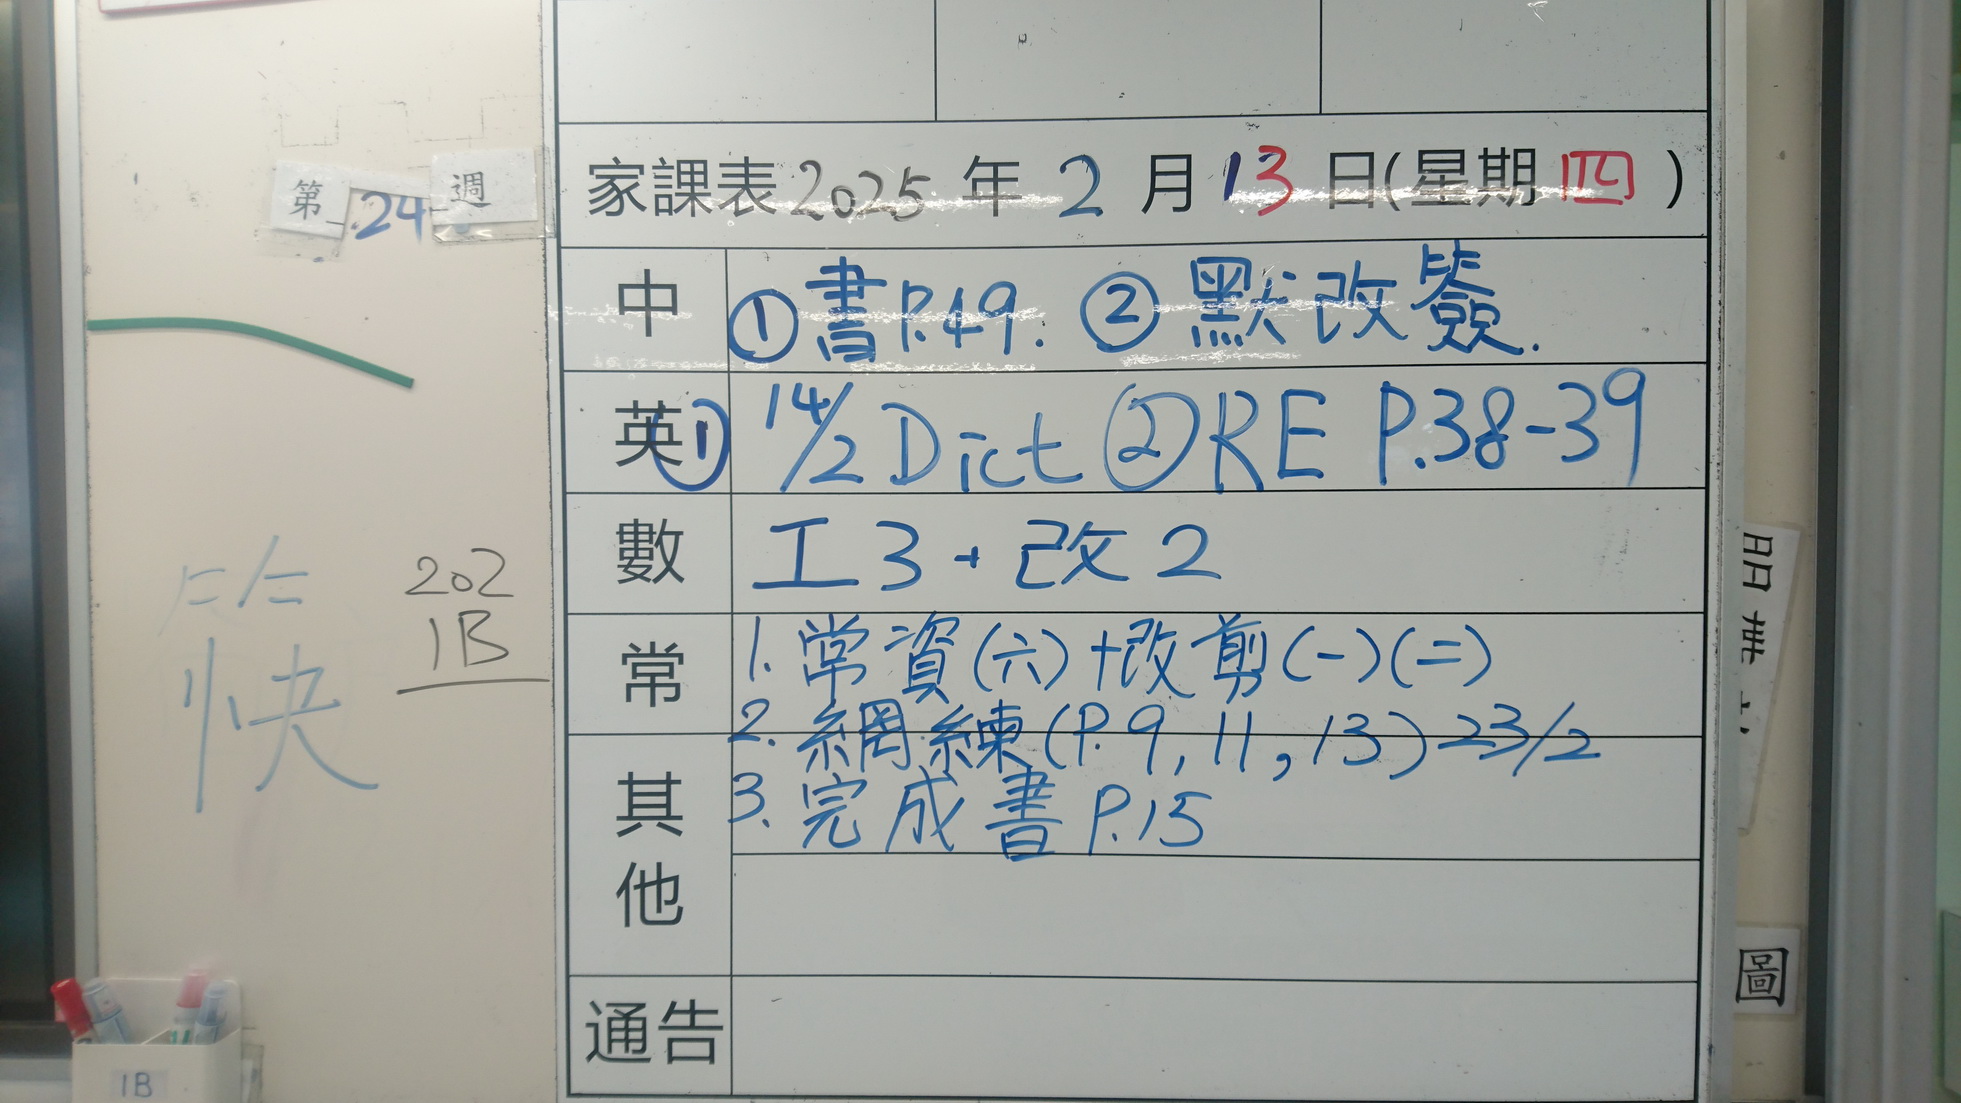 第 24 週
家課表 2025 年 2 月 13 日(星期四)
中 ① 書P.49. ② 默改簽.
英 ① 14/2 Dict ② RE P.38-39
數 工3 + 改2
常 1. 常資(六)+改剪(一)(二)
2. 網練(P.9, 11, 13) 23/2
其他 3. 完成書P.15
通告
快
202
1B
1B
圖